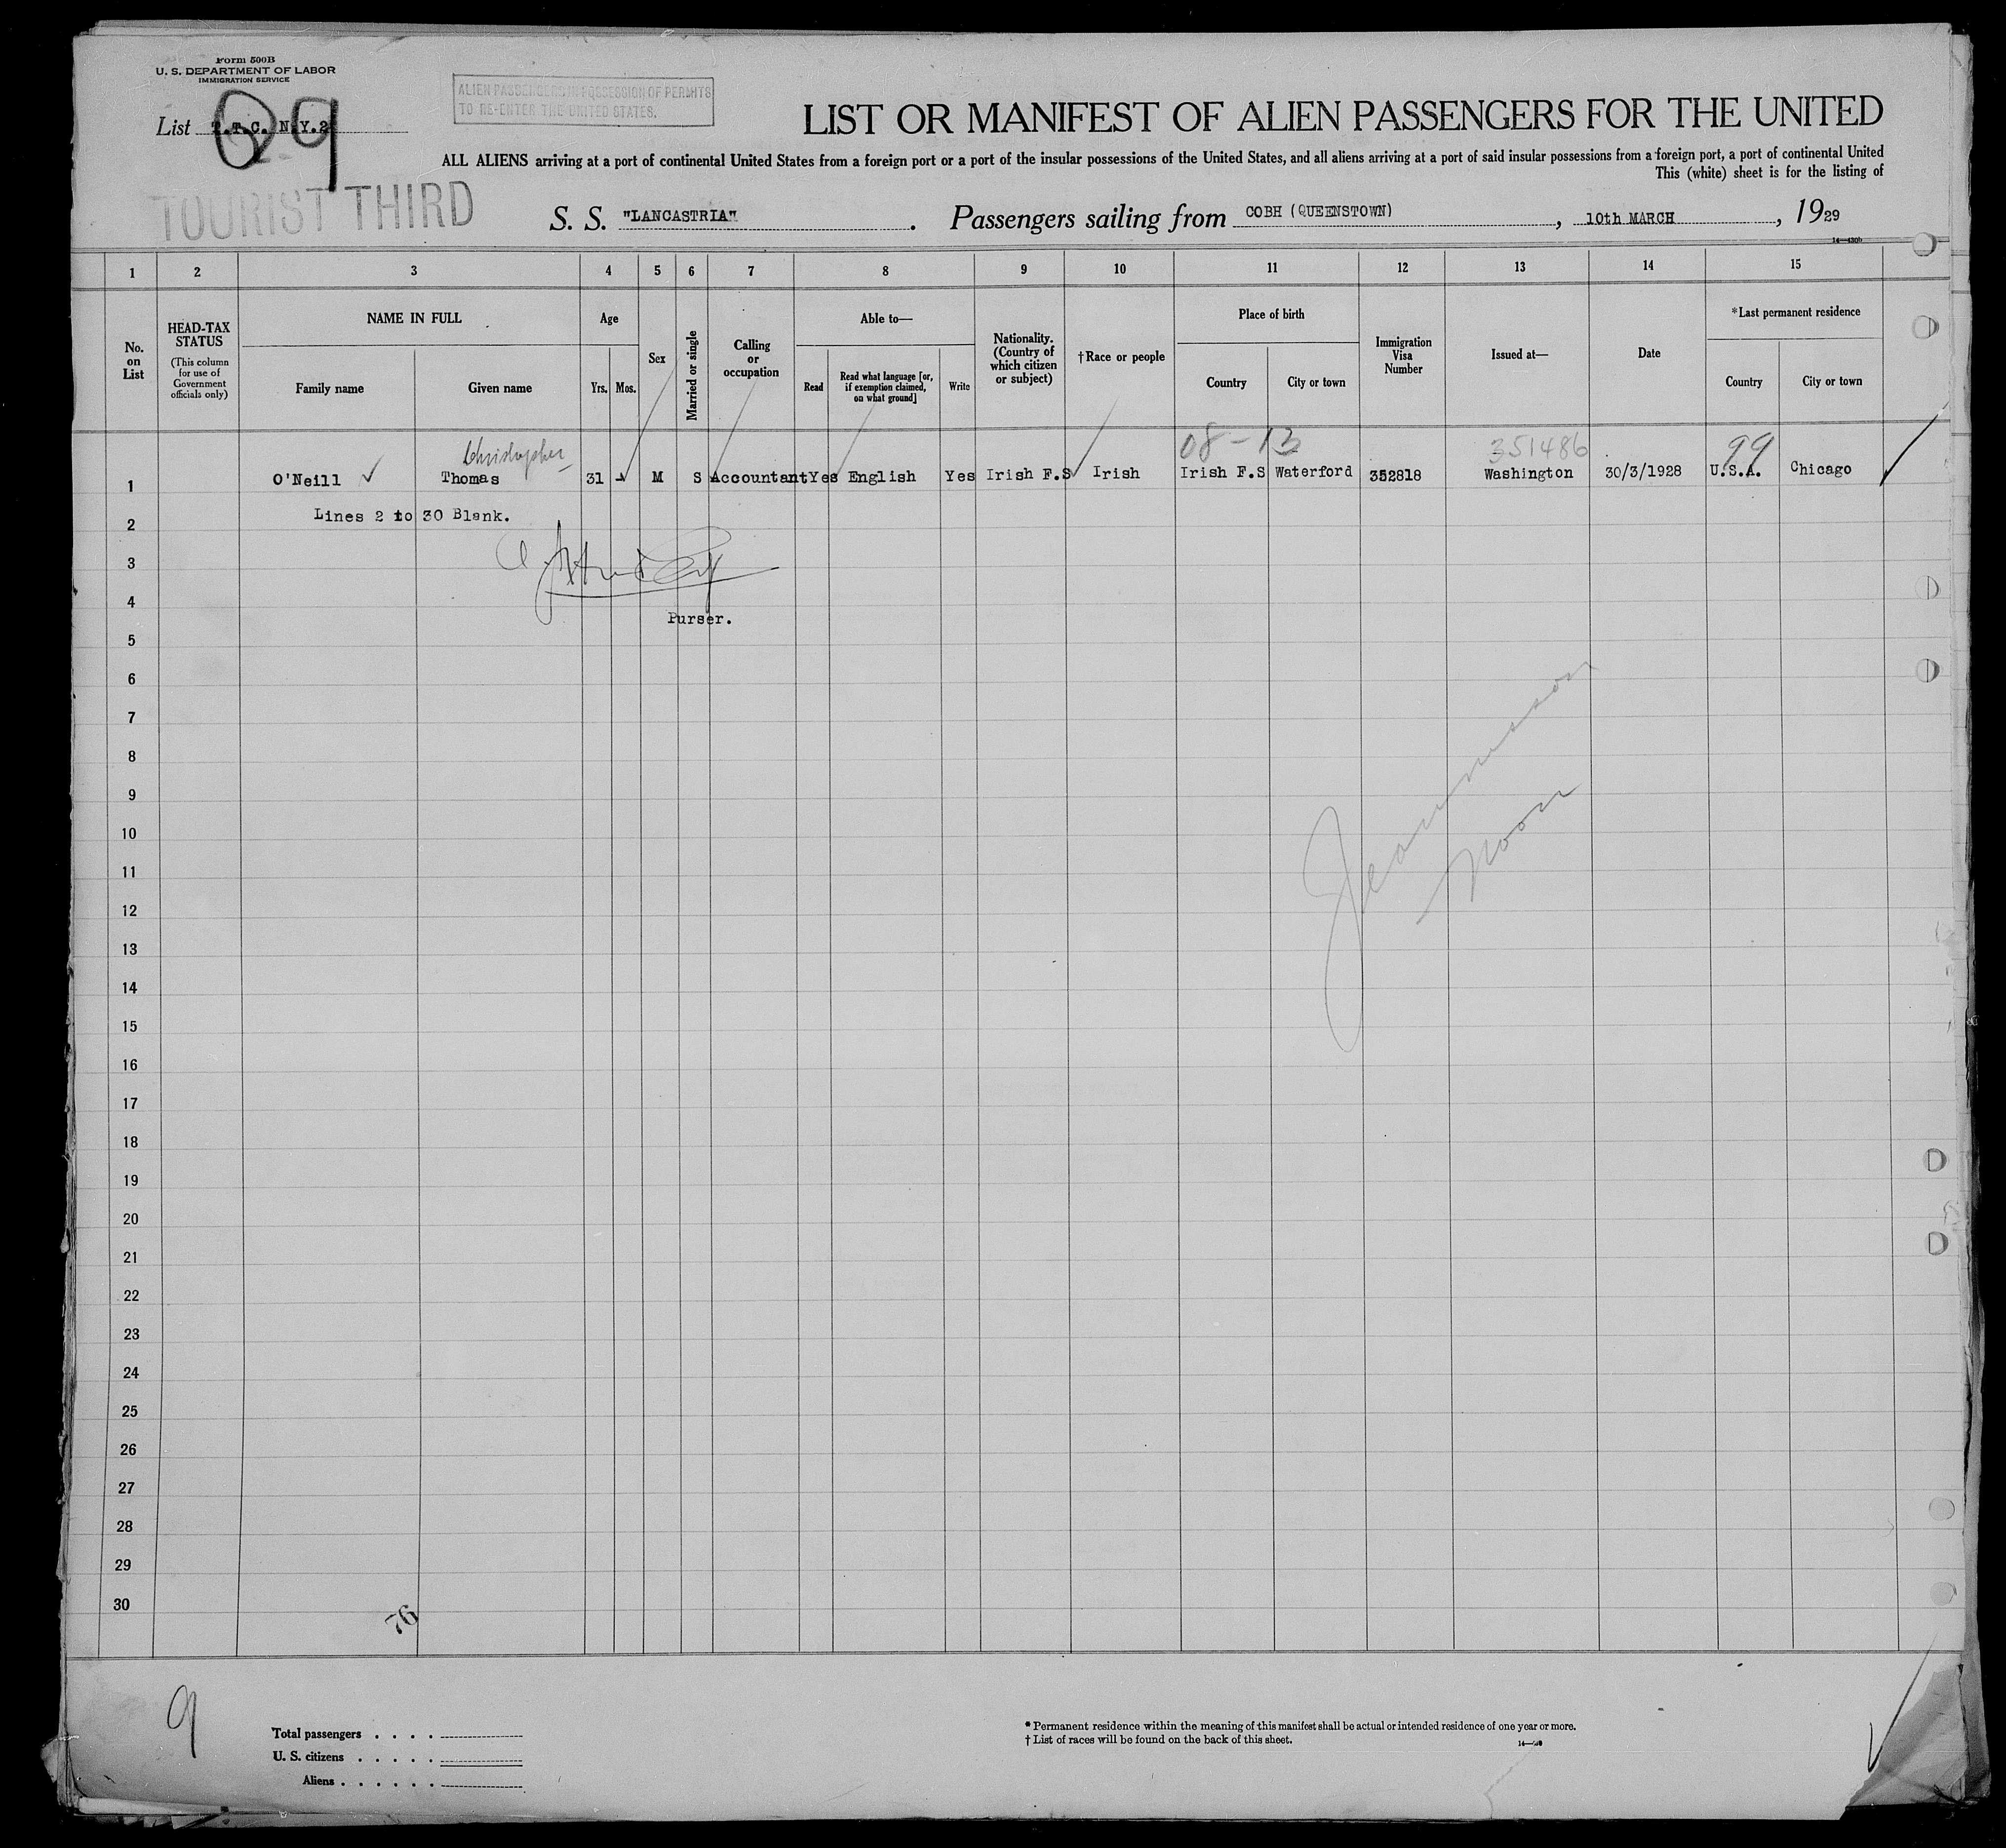 Form 500B
U. S. DEPARTMENT OF LABOR
IMMIGRATION SERVICE
ALIEN PASSENGERS IN POSSESSION OF PERMITS
TO RE-ENTER THE UNITED STATES.
List T.T.C. N.Y.2
69
TOURIST THIRD
LIST OR MANIFEST OF ALIEN PASSENGERS FOR THE UNITED
ALL ALIENS arriving at a port of continental United States from a foreign port or a port of the insular possessions of the United States, and all aliens arriving at a port of said insular possessions from a foreign port, a port of continental United
This (white) sheet is for the listing of
S. S. "LANCASTRIA". Passengers sailing from COBH (QUEENSTOWN), 10th MARCH, 1929
1 2 3 4 5 6 7 8 9 10 11 12 13 14 15
No. on List
HEAD-TAX STATUS
(This column for use of Government officials only)
NAME IN FULL
Family name
Given name
Age
Yrs.
Mos.
Sex
Married or single
Calling or occupation
Able to—
Read
Read what language [or, if exemption claimed, on what ground]
Write
Nationality. (Country of which citizen or subject)
†Race or people
Place of birth
Country
City or town
Immigration Visa Number
Issued at—
Date
*Last permanent residence
Country
City or town
Christopher 08-13 351486 99
1 O'Neill Thomas 31 - M S Accountant Yes English Yes Irish F.S Irish Irish F.S Waterford 352818 Washington 30/3/1928 U.S.A. Chicago
2 Lines 2 to 30 Blank.
3
4
Purser.
5
6
7
8
9
10
11
Noon
12
13
14
15
16
17
18
19
20
21
22
23
24
25
26
27
28
29
30
76
9
Total passengers . . . .
U. S. citizens . . . . .
Aliens . . . . . .
* Permanent residence within the meaning of this manifest shall be actual or intended residence of one year or more.
† List of races will be found on the back of this sheet.